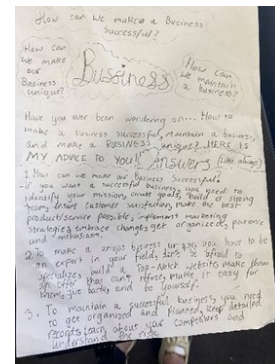 How can we make a Business
Successful?
How can
we make
our
Business
unique?
Bussiness
How can
we maintain
a business?
Have you ever been wondering on... How to
make a business successful, maintain a business,
and make a BUSINESS unique? HERE IS
MY ADVICE TO YOU!! Answers
1. How can we make our Business Successful?
if you want a successful business you need to
identify your mission, create goals, build a strong
team, learn customer satisfaction, make our best
product/service possible, implement marketing
strategies, embrace change, get organized, patience
and enthusiasm.
2. To make a business unique, you have to be
an expert in your field, don't be afraid to
specialize, build a Top-Notch website make them
an offer they can't refuse, make it easy for
them, give back, and be yourself.
3. To maintain a successful business, you need
to get organized and planned, keep detailed
records, learn about your competitors and
understand the risks